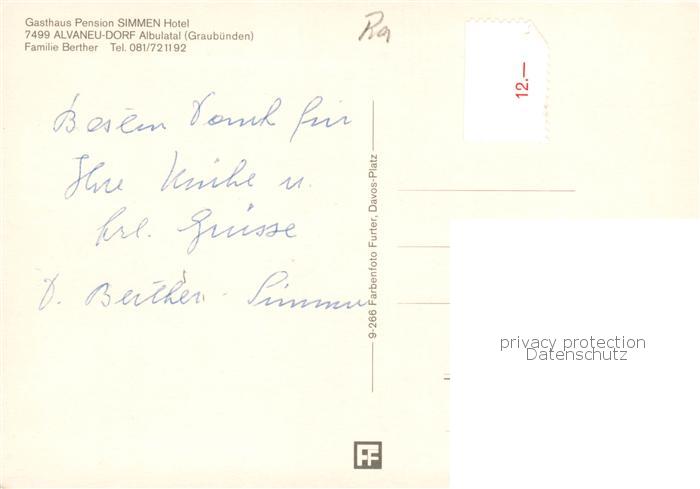 Gasthaus Pension SIMMEN Hotel
7499 ALVANEU-DORF Albulatal (Graubünden)
Familie Berther Tel. 081/721192
Ra
12.—
Besten Dank für
Ihre Mühe u.
frl. Grüsse
D. Berther - Simmen
9-266 Farbenfoto Furter, Davos-Platz
privacy protection
Datenschutz
FF